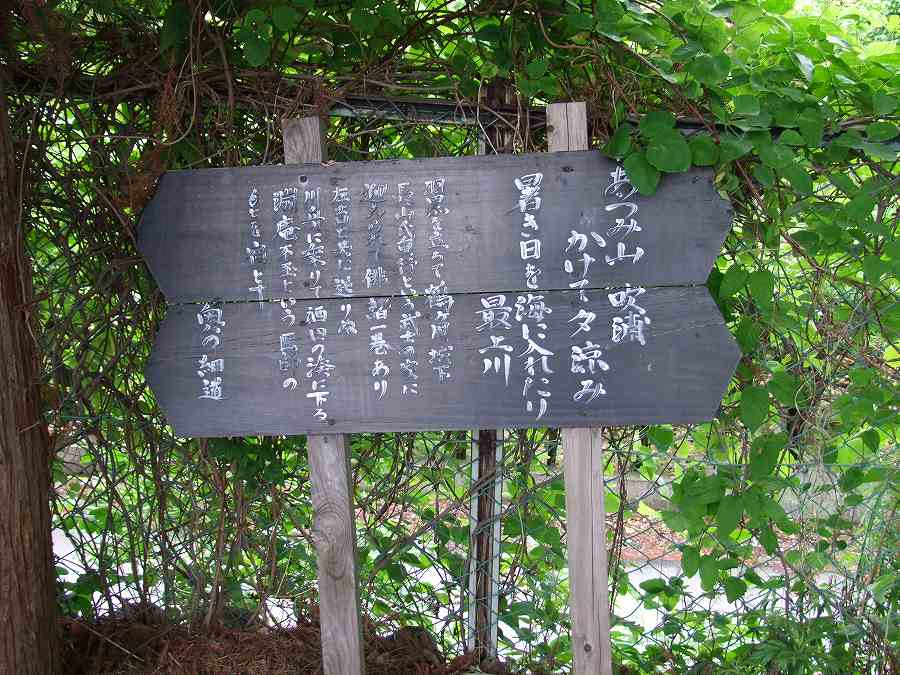 あつみ山 吹浦
かけて夕涼み
暑き日を海に入れたり
最上川
羽黒を立ちて鶴ヶ岡城下
長山氏重行という武士の家に
迎えられて俳諧一巻あり
左吉も共に送りぬ
川舟に乗りて酒田の湊に下る
渕庵不玉という医師の
もとを宿とす
奥の細道